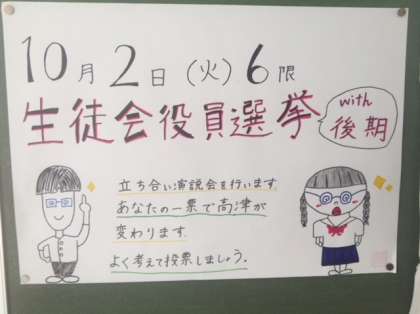 10月2日（火）6限
生徒会役員選挙
with
後期
立ち合い演説会を行います
あなたの一票で高津が
変わります
よく考えて投票しましょう。